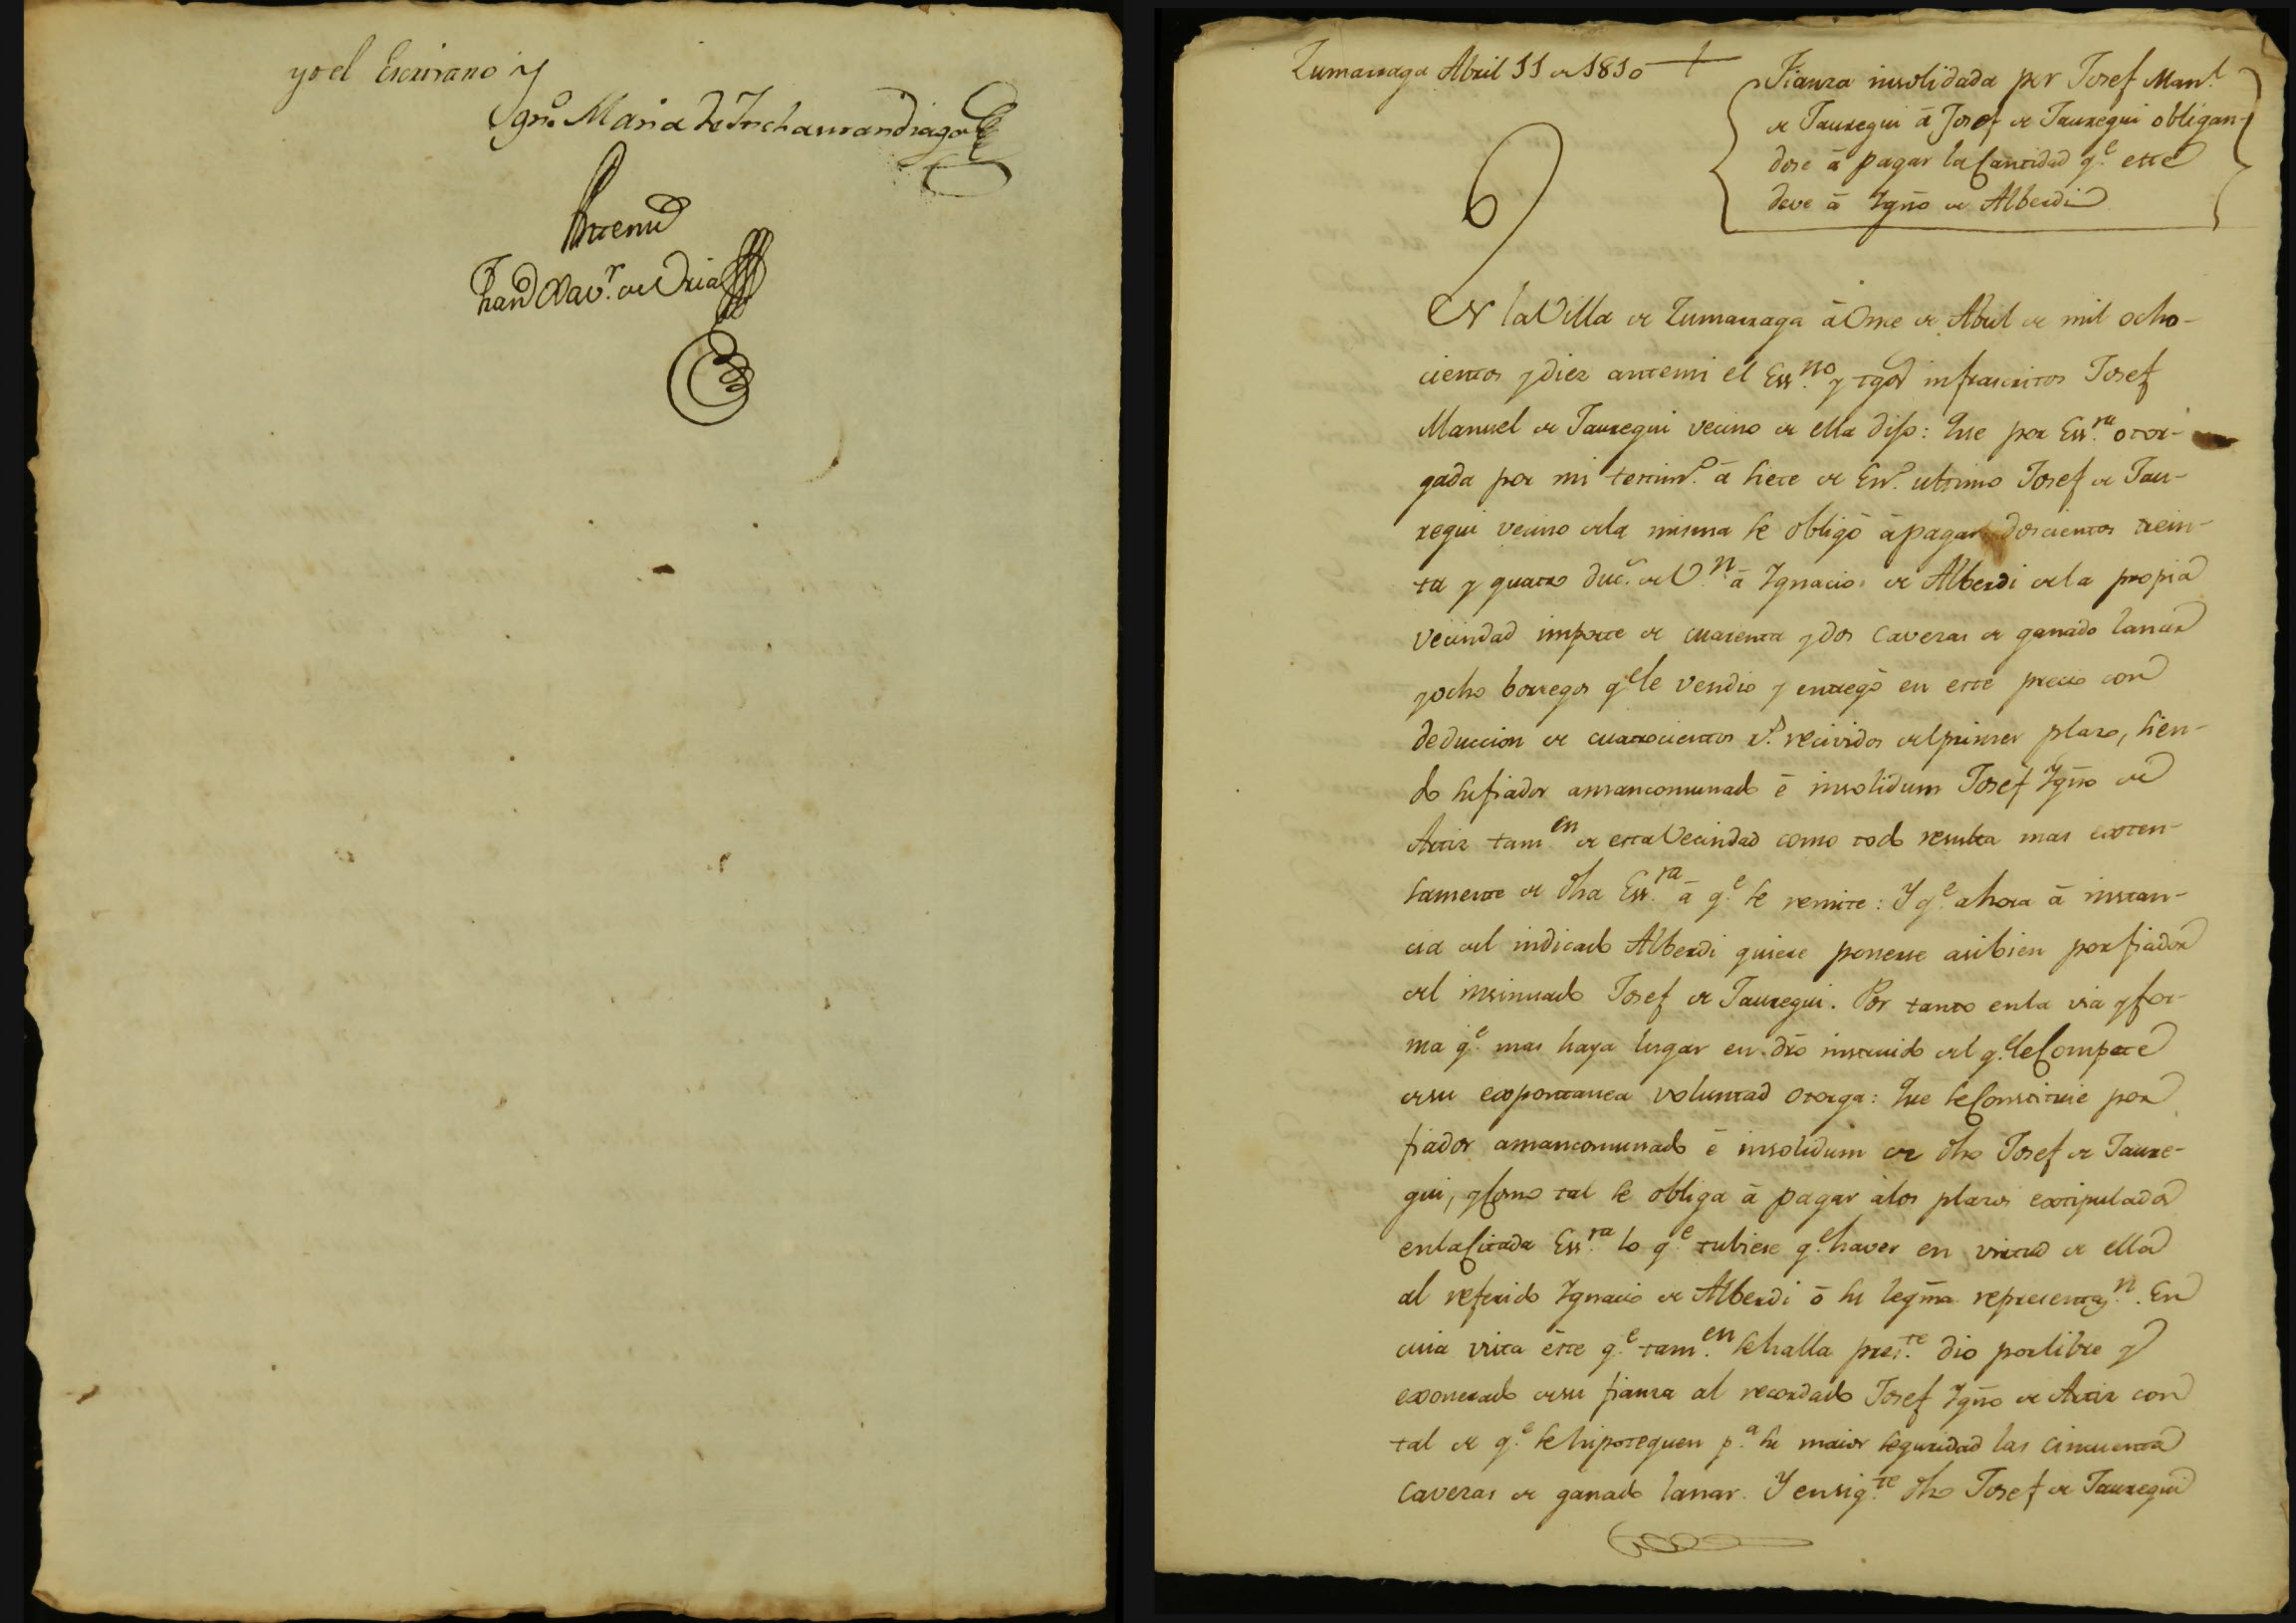 yo el Escrivano y
Ygn.º Maria de Inchaurrandiaga
Antemi
Fran.co Xav.r de Oria
Zumarraga Abril 11 de 1810
Fianza insolidada por Josef Man.l
de Jauregui á Josef de Jauregui obligan-
dose á pagar la Cantidad q.e este
deve á Ygñо de Alberdi
6
EN la Villa de Zumarraga á Once de Abril de mil ocho-
cientos y diez antemi el Ess.no y tgos infrascritos Josef
Manuel de Jauregui vecino de ella dijo: Que por Ess.ra otor-
gada por mi testim.º á siete de En.º ultimo Josef de Jau-
regui vecino de la misma se obligó á pagar doscientos trein-
ta y quatro duc.s de V.n á Ygnacio de Alberdi de la propia
vecindad importe de cuarenta y dos cavezas de ganado lanar
y ocho borregos q.e le vendio y entregó en este precio con
deduccion de cuatrocientos r.s recividos del primer plazo, sien-
do su fiador amancomunado é insolidum Josef Ygño de
Artiz tam.en de esta Vecindad como todo resulta mas exten-
samente de dha Ess.ra á q.e se remite: Y q.e ahora á instan-
cia del indicado Alberdi quiere ponerse asibien por fiador
del insinuado Josef de Jauregui. Por tanto en la via y for-
ma q.e mas haya lugar en dro instruido del q.e le Compete
de su expontanea voluntad otorga: Que se Constituie por
fiador amancomunado é insolidum de dho Josef de Jaure-
gui, y Como tal se obliga á pagar á los plazos extipulados
en la Citada Ess.ra lo q.e tubiese q.e haver en virtud de ella
al referido Ygnacio de Alberdi ó su legma representaz.n. En
cuia vista éste q.e tam.en se halla pres.te dio por libre y
exonerado de su fianza al recordado Josef Ygño de Artiz con
tal de q.e se hipotequen p.a su maior seguridad las cincuenta
cavezas de ganado lanar. Y en sig.te dho Josef de Jauregui